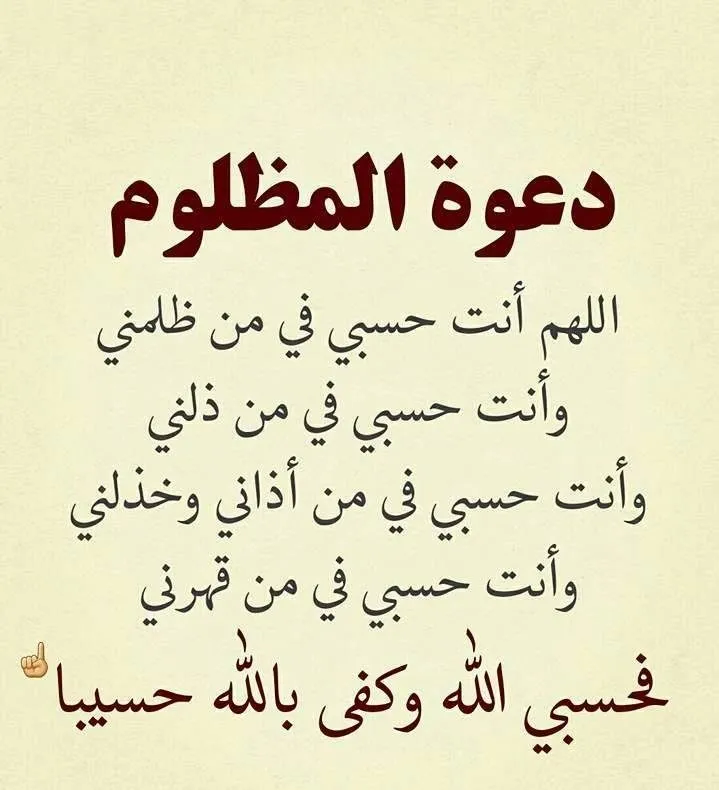 دعوة المظلوم
اللهم أنت حسبي في من ظلمني
وأنت حسبي في من ذلني
وأنت حسبي في من أذاني وخذلني
وأنت حسبي في من قهرني
فحسبي الله وكفى بالله حسيبا☝🏼